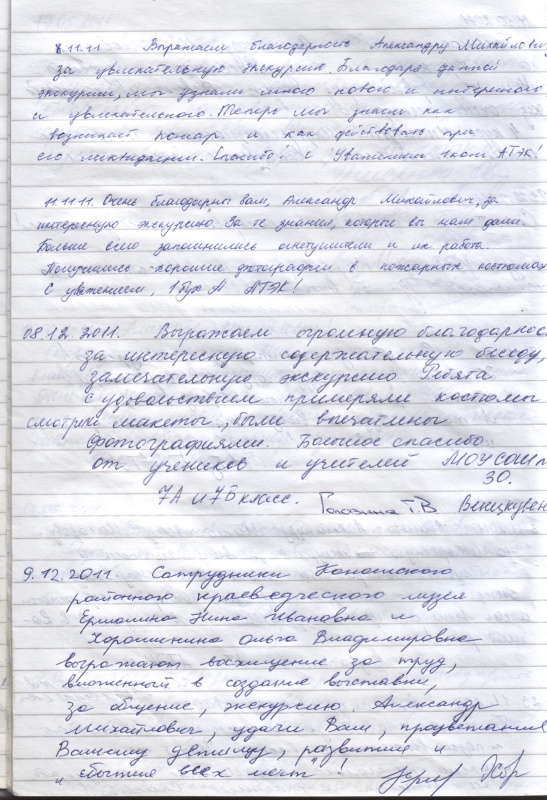 8.11.11 Выражаем благодарность Александру Михайлович
за увлекательную экскурсию. Благодаря данной
экскурсии, мы узнали много нового и интересного
и увлекательного. Теперь мы знаем как
возникает пожар и как действовать при
его ликвидации. Спасибо! С Уважением 1 АТЭК!
11.11.11. Очень благодарны вам, Александр Михайлович, за
интересную экскурсию. За те знания, которые вы нам дали.
Больше всего запомнились огнетушители и их работа
Получились хорошие фотографии в пожарных костюмах
С уважением, 1 бух А АТЭК!
08.12.2011. Выражаем огромную благодарнос
за интересную содержательную беседу,
замечательную экскурсию Ребята
с удовольствием примеряли костюмы
смотрели макеты, были впечатлены
фотографиями. Большое спасибо
от учеников и учителей МОУСОШ №
30.
7А и 7Б класс. Т.В
9.12.2011 Сотрудники
районного краеведческого музея
Ермолина Нина Ивановна и
Хорошинина Ольга Владимировна
выражают восхищение за труд,
вложенный в создание выставки,
за общение, экскурсию. Александр
Михайлович, удачи Вам, процветания
Вашему детищу, развития и
„сбытия всех мечт"!